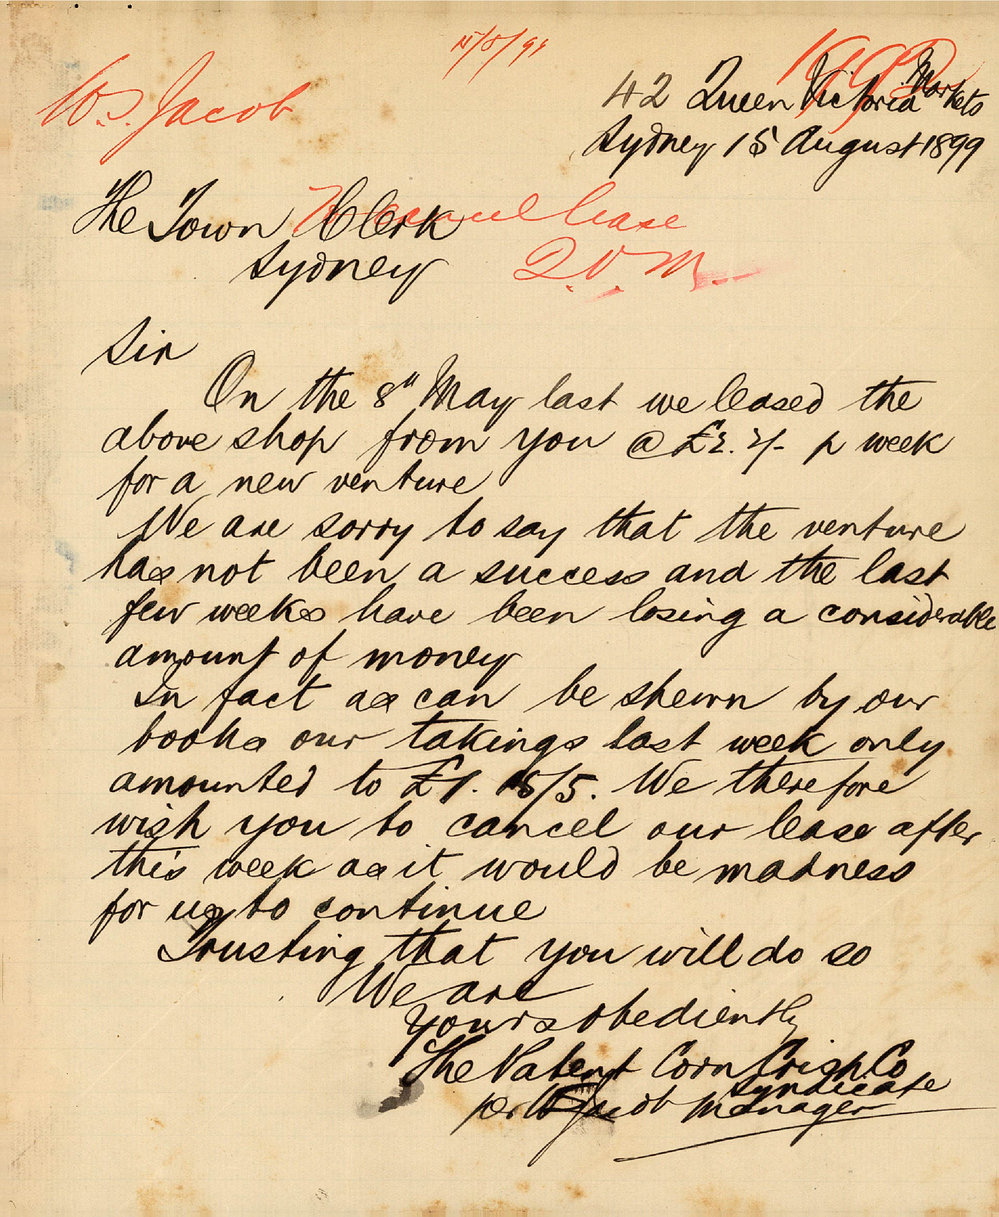 15/8/99
W. J. Jacob
42 Queen Victoria Markets
Sydney 15 August 1899
The Town Clerk
Sydney
lease
Q.V.M.
Sir
On the 8th May last we leased the
above shop from you @ £2. 2/- p week
for a new venture
We are sorry to say that the venture
has not been a success and the last
few weeks have been losing a considerable
amount of money
In fact as can be shewn by our
books our takings last week only
amounted to £1. 18/5. We therefore
wish you to cancel our lease after
this week as it would be madness
for us to continue
Trusting that you will do so
We are
Yours obediently
The Patent Corn Co
Syndicate
per W Jacob Manager